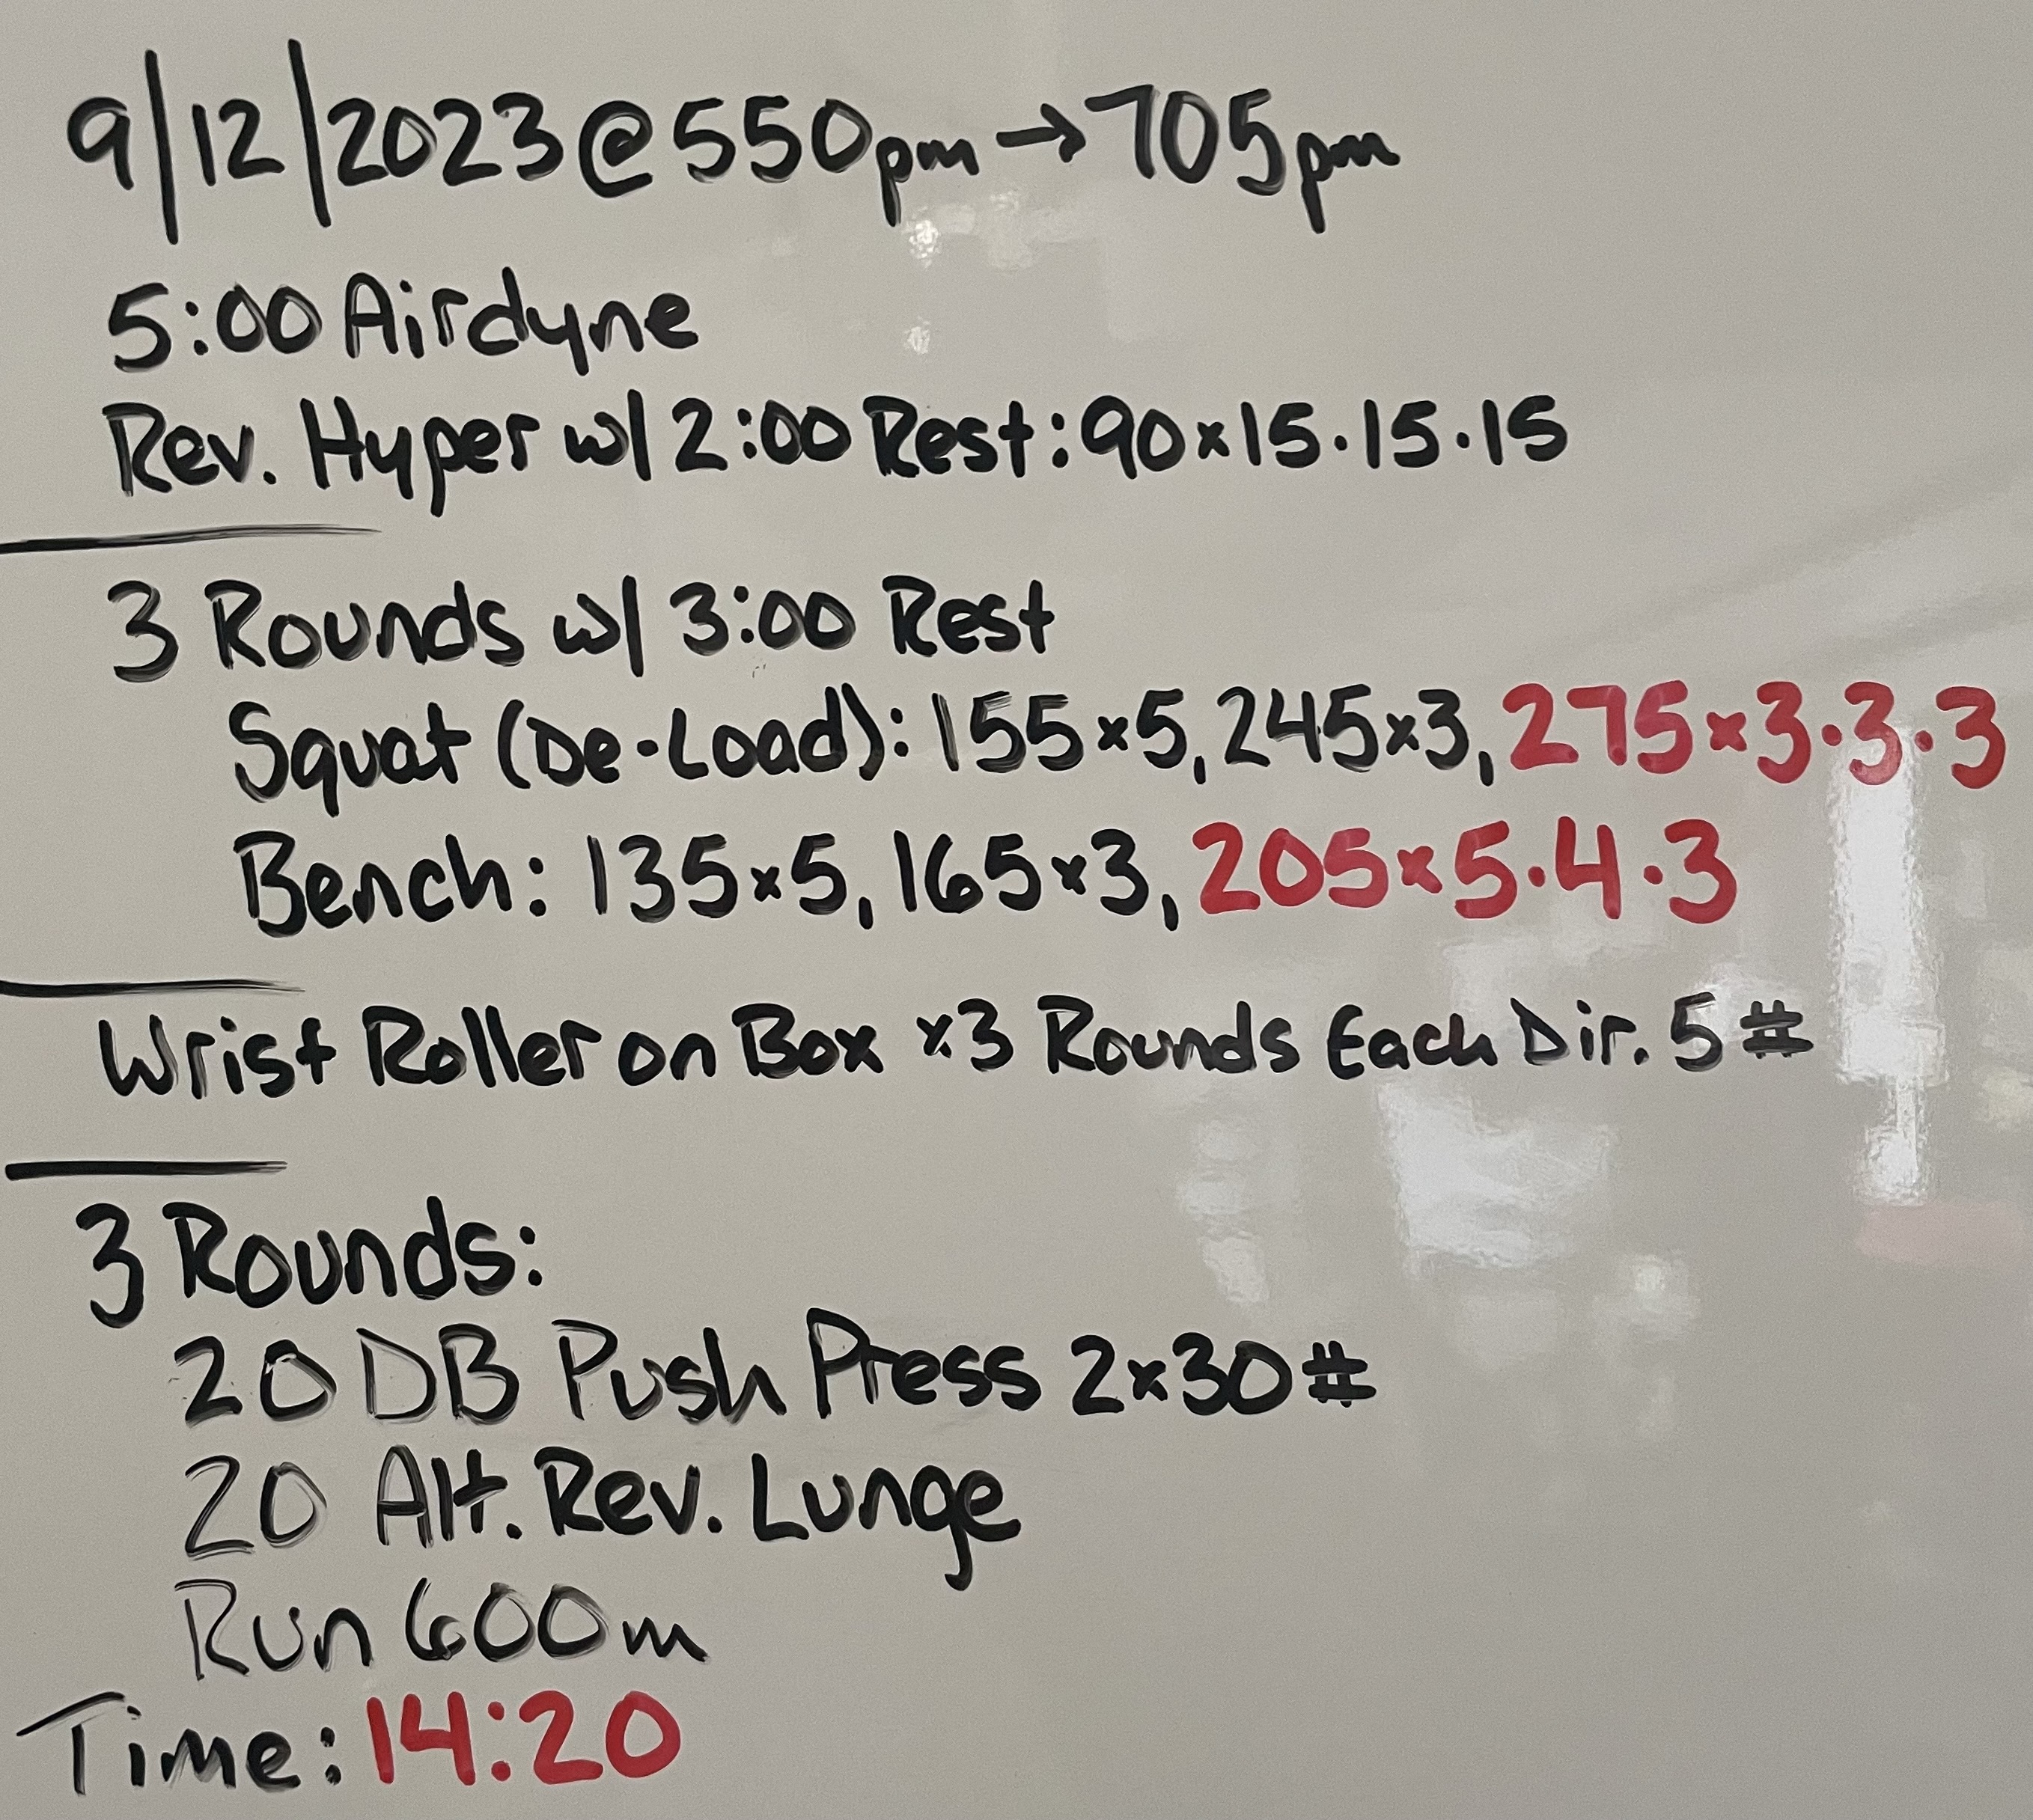 9/12/2023@550pm→705pm
5:00 Airdyne
Rev. Hyper w/ 2:00 Rest: 90x15·15·15
3 Rounds w/ 3:00 Rest
Squat (De-Load): 155x5, 245x3, 275x3·3·3
Bench: 135x5, 165x3, 205x5·4·3
Wrist Roller on Box x3 Rounds Each Dir. 5#
3 Rounds:
20 DB Push Press 2x30#
20 Alt. Rev. Lunge
Run 600m
Time: 14:20